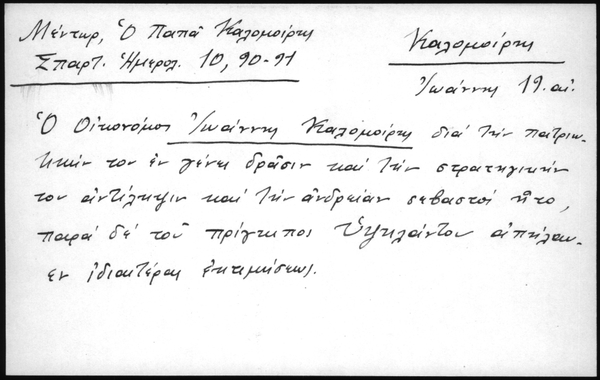 Μέντωρ, Ὁ Παπᾶ Καλομοίρης
Σπαρτ. Ἡμερολ. 10, 90-91
Καλομοίρης
Ἰωάννης 19. αἰ.
Ὁ Οἰκονόμος Ἰωάννης Καλομοίρης διά τήν πατριω-
τικήν του ἐν γένει δρᾶσιν καί τήν στρατηγικήν
του ἀντίληψιν καί τήν ἀνδρείαν σεβαστός ἦτο,
παρά δέ τοῦ πρίγκηπος Ὑψηλάντου ἀπήλαυ-
εν ἰδιαιτέρας ἐκτιμήσεως.